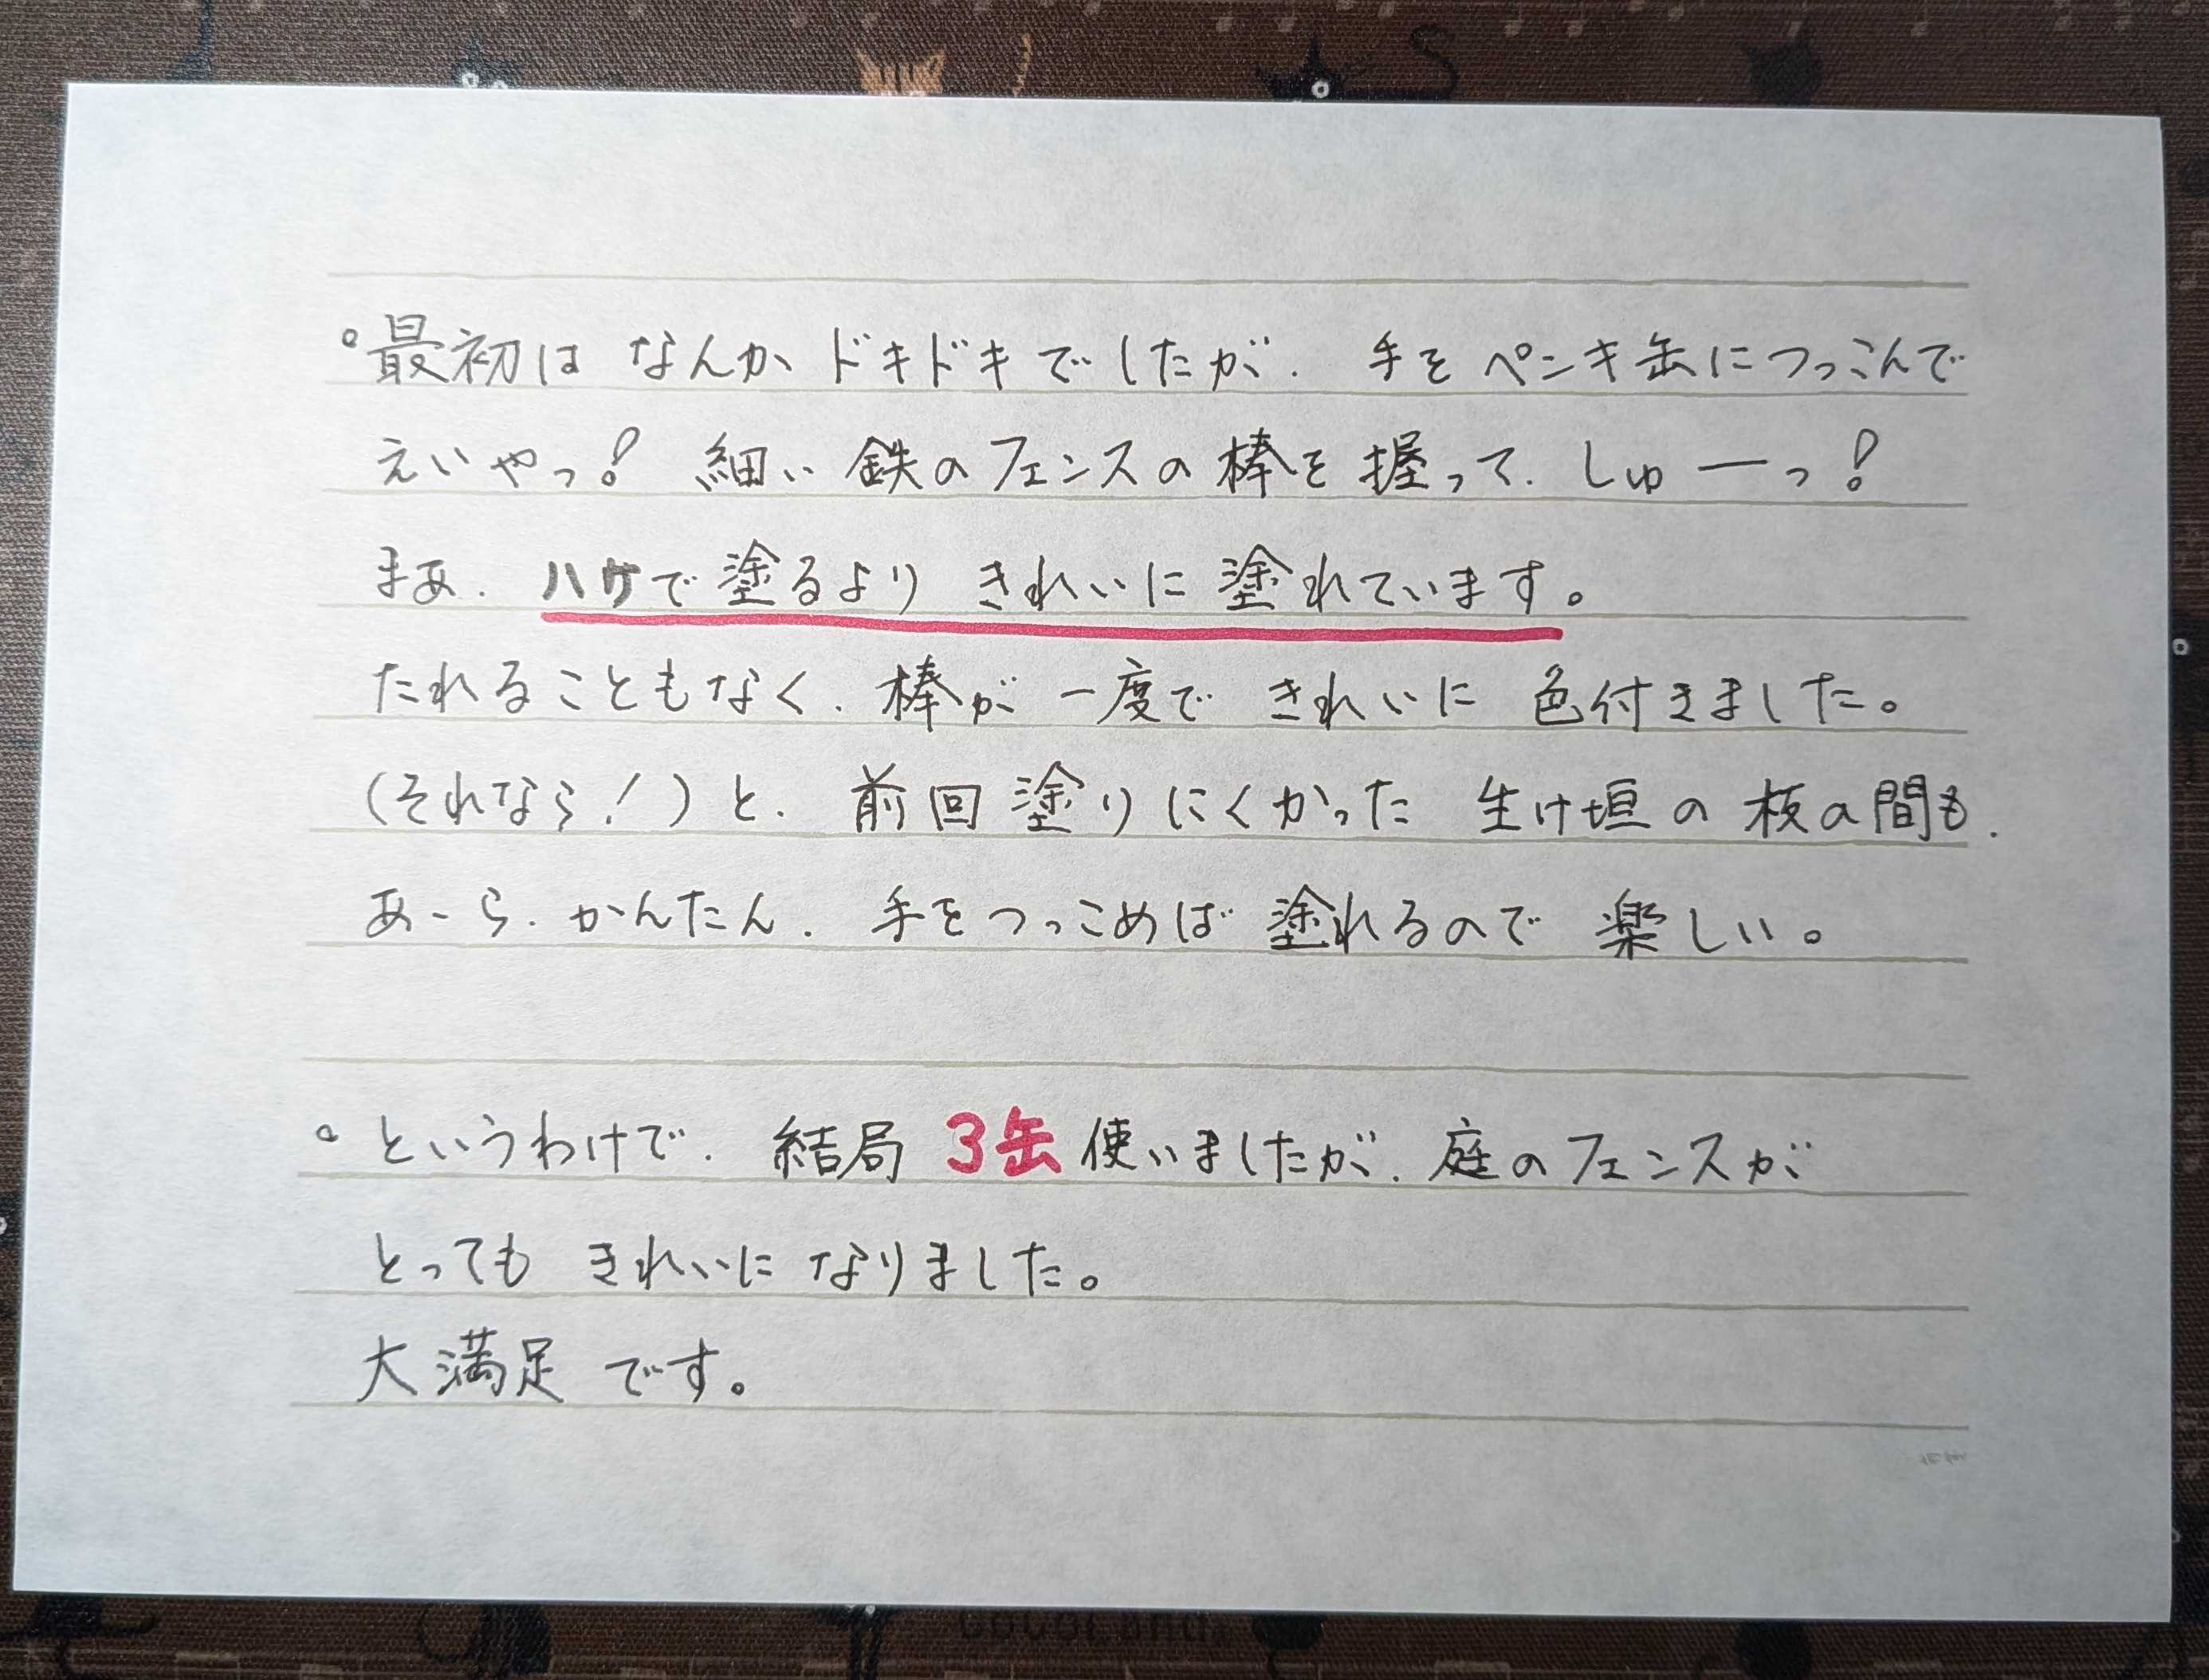 。最初は なんか ドキドキでしたが、手をペンキ缶につっこんで
えいやっ! 細い鉄のフェンスの棒を握って、しゅーっ!
まあ、ハケで塗るより きれいに塗れています。
たれることもなく、棒が一度で きれいに 色付きました。
(それなら!)と、前回塗りにくかった 生け垣の板の間も、
あーら、かんたん、手をつっこめば 塗れるので 楽しい。
。というわけで、結局 3缶 使いましたが、庭のフェンスが
とっても きれいに なりました。
大満足です。